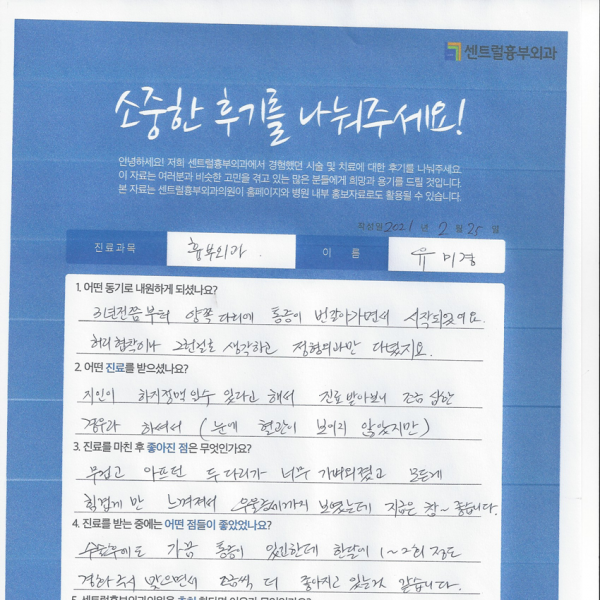 센트럴흉부외과
소중한 후기를 나눠주세요!
안녕하세요! 저희 센트럴흉부외과에서 경험했던 시술 및 치료에 대한 후기를 나눠주세요.
이 자료는 여러분과 비슷한 고민을 겪고 있는 많은 분들에게 희망과 용기를 드릴 것입니다.
본 자료는 센트럴흉부외과의원이 홈페이지와 병원 내부 홍보자료로도 활용될 수 있습니다.
작성일 2021 년 2 월 25 일
진료과목 흉부외과. 이 름 유미경
1. 어떤 동기로 내원하게 되셨나요?
3년전쯤부터 양쪽다리에 통증이 번갈아가면서 시작되었어요.
허리협착이나 그런걸로 생각하고 정형외과만 다녔지요.
2. 어떤 진료를 받으셨나요?
지인이 하지정맥일수 있다고 해서 진료받아보니 조금 심한
경우라 하셔서 (눈에 혈관이 보이지 않았지만)
3. 진료를 마친 후 좋아진 점은 무엇인가요?
무겁고 아프던 두다리가 너무 가벼워졌고 모든게
힘겹게만 느껴져서 우울증세까지 보였는데 지금은 참~ 좋습니다.
4. 진료를 받는 중에는 어떤 점들이 좋았었나요?
수술후에도 가끔 통증이 있긴한데 한달이 1~2회 정도
맞으면서 조금씩 더 좋아지고 있는것 같습니다.